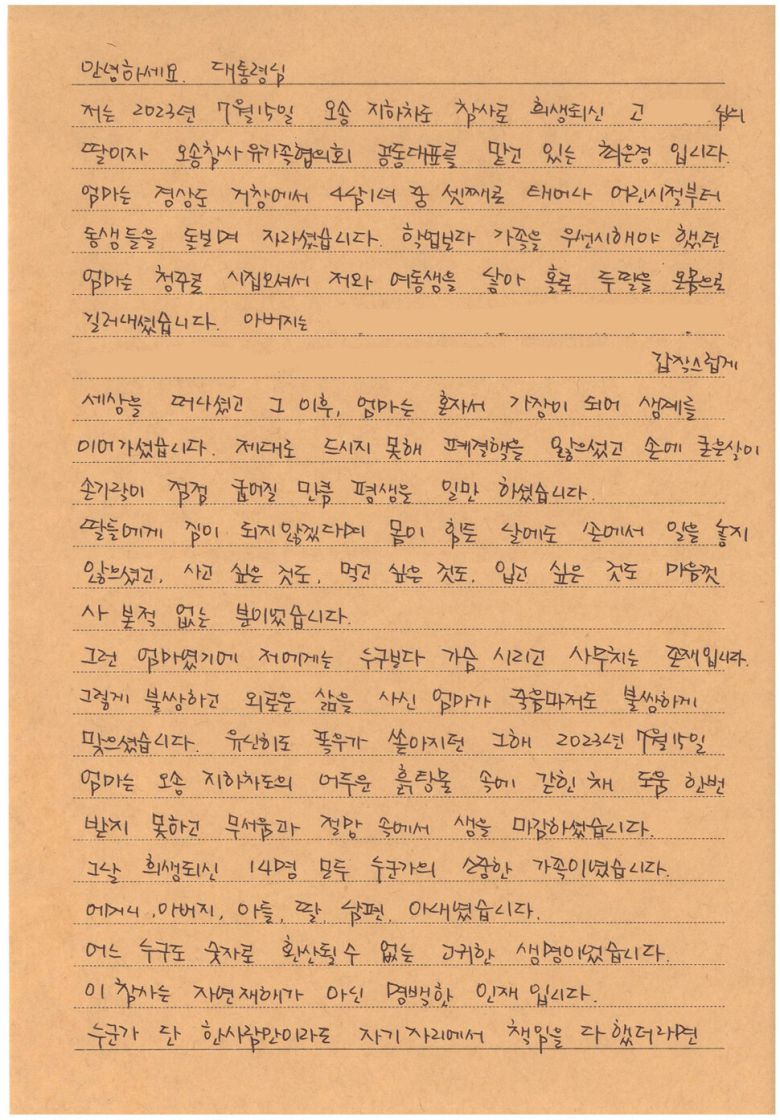 안녕하세요. 대통령님
저는 2023년 7월15일 오송 지하차도 참사로 희생되신 고 님의
딸이자 오송참사유가족협의회 공동대표를 맡고 있는 최은경 입니다.
엄마는 경상도 거창에서 4남1녀 중 셋째로 태어나 어린시절부터
동생들을 돌보며 자라셨습니다. 학업보다 가족을 우선시해야 했던
엄마는 청주로 시집오셔서 저와 여동생을 낳아 홀로 두딸을 온몸으로
길러내셨습니다. 아버지는
갑작스럽게
세상을 떠나셨고 그 이후, 엄마는 혼자서 가장이 되어 생계를
이어가셨습니다. 제대로 드시지 못해 폐결핵을 앓으셨고 손에 굳은살이
손가락이 점점 굽어질 만큼 평생을 일만 하셨습니다.
딸들에게 짐이 되지않겠다며 몸이 힘든 날에도 손에서 일을 놓지
않으셨고, 사고 싶은 것도, 먹고 싶은 것도, 입고 싶은 것도 마음껏
사 본적 없는 분이었습니다.
그런 엄마였기에 저에게는 누구보다 가슴 시리고 사무치는 존재입니다.
그렇게 불쌍하고 외로운 삶을 사신 엄마가 죽음마저도 불쌍하게
맞으셨습니다. 유난히도 폭우가 쏟아지던 그해 2023년 7월15일
엄마는 오송 지하차도의 어두운 흙탕물 속에 갇힌채 도움 한번
받지 못하고 무서움과 절망 속에서 생을 마감하셨습니다.
그날 희생되신 14명 모두 누군가의 소중한 가족이였습니다.
어머니, 아버지, 아들, 딸, 남편, 아내였습니다.
어느 누구도 숫자로 환산될수 없는 고귀한 생명이었습니다.
이 참사는 자연재해가 아닌 명백한 인재입니다.
누군가 단 한사람만이라도 자기자리에서 책임을 다했더라면